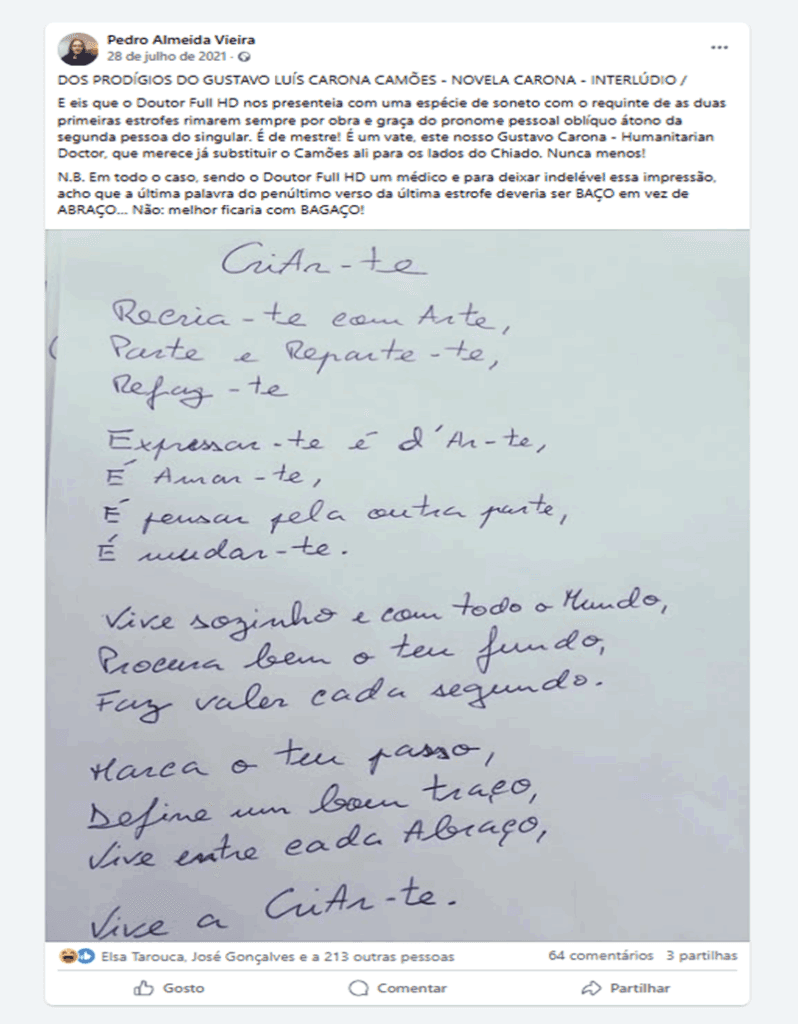 Pedro Almeida Vieira
28 de julho de 2021 ·
DOS PRODÍGIOS DO GUSTAVO LUÍS CARONA CAMÕES - NOVELA CARONA - INTERLÚDIO /
E eis que o Doutor Full HD nos presenteia com uma espécie de soneto com o requinte de as duas
primeiras estrofes rimarem sempre por obra e graça do pronome pessoal oblíquo átono da
segunda pessoa do singular. É de mestre! É um vate, este nosso Gustavo Carona - Humanitarian
Doctor, que merece já substituir o Camões ali para os lados do Chiado. Nunca menos!
N.B. Em todo o caso, sendo o Doutor Full HD um médico e para deixar indelével essa impressão,
acho que a última palavra do penúltimo verso da última estrofe deveria ser BAÇO em vez de
ABRAÇO... Não: melhor ficaria com BAGAÇO!
CriAr-te
Recria-te com Arte,
Parte e Reparte-te,
Refaz-te
Expressar-te é d'Ar-te,
É Amar-te,
É pensar pela outra parte,
É mudar-te.
Vive sozinho e com todo o Mundo,
Procura bem o teu fundo,
Faz valer cada segundo.
Marca o teu passo,
Define um bom traço,
Vive entre cada Abraço,
Vive a CriAr-te.
Elsa Tarouca, José Gonçalves e a 213 outras pessoas
64 comentários 3 partilhas
Gosto Comentar Partilhar